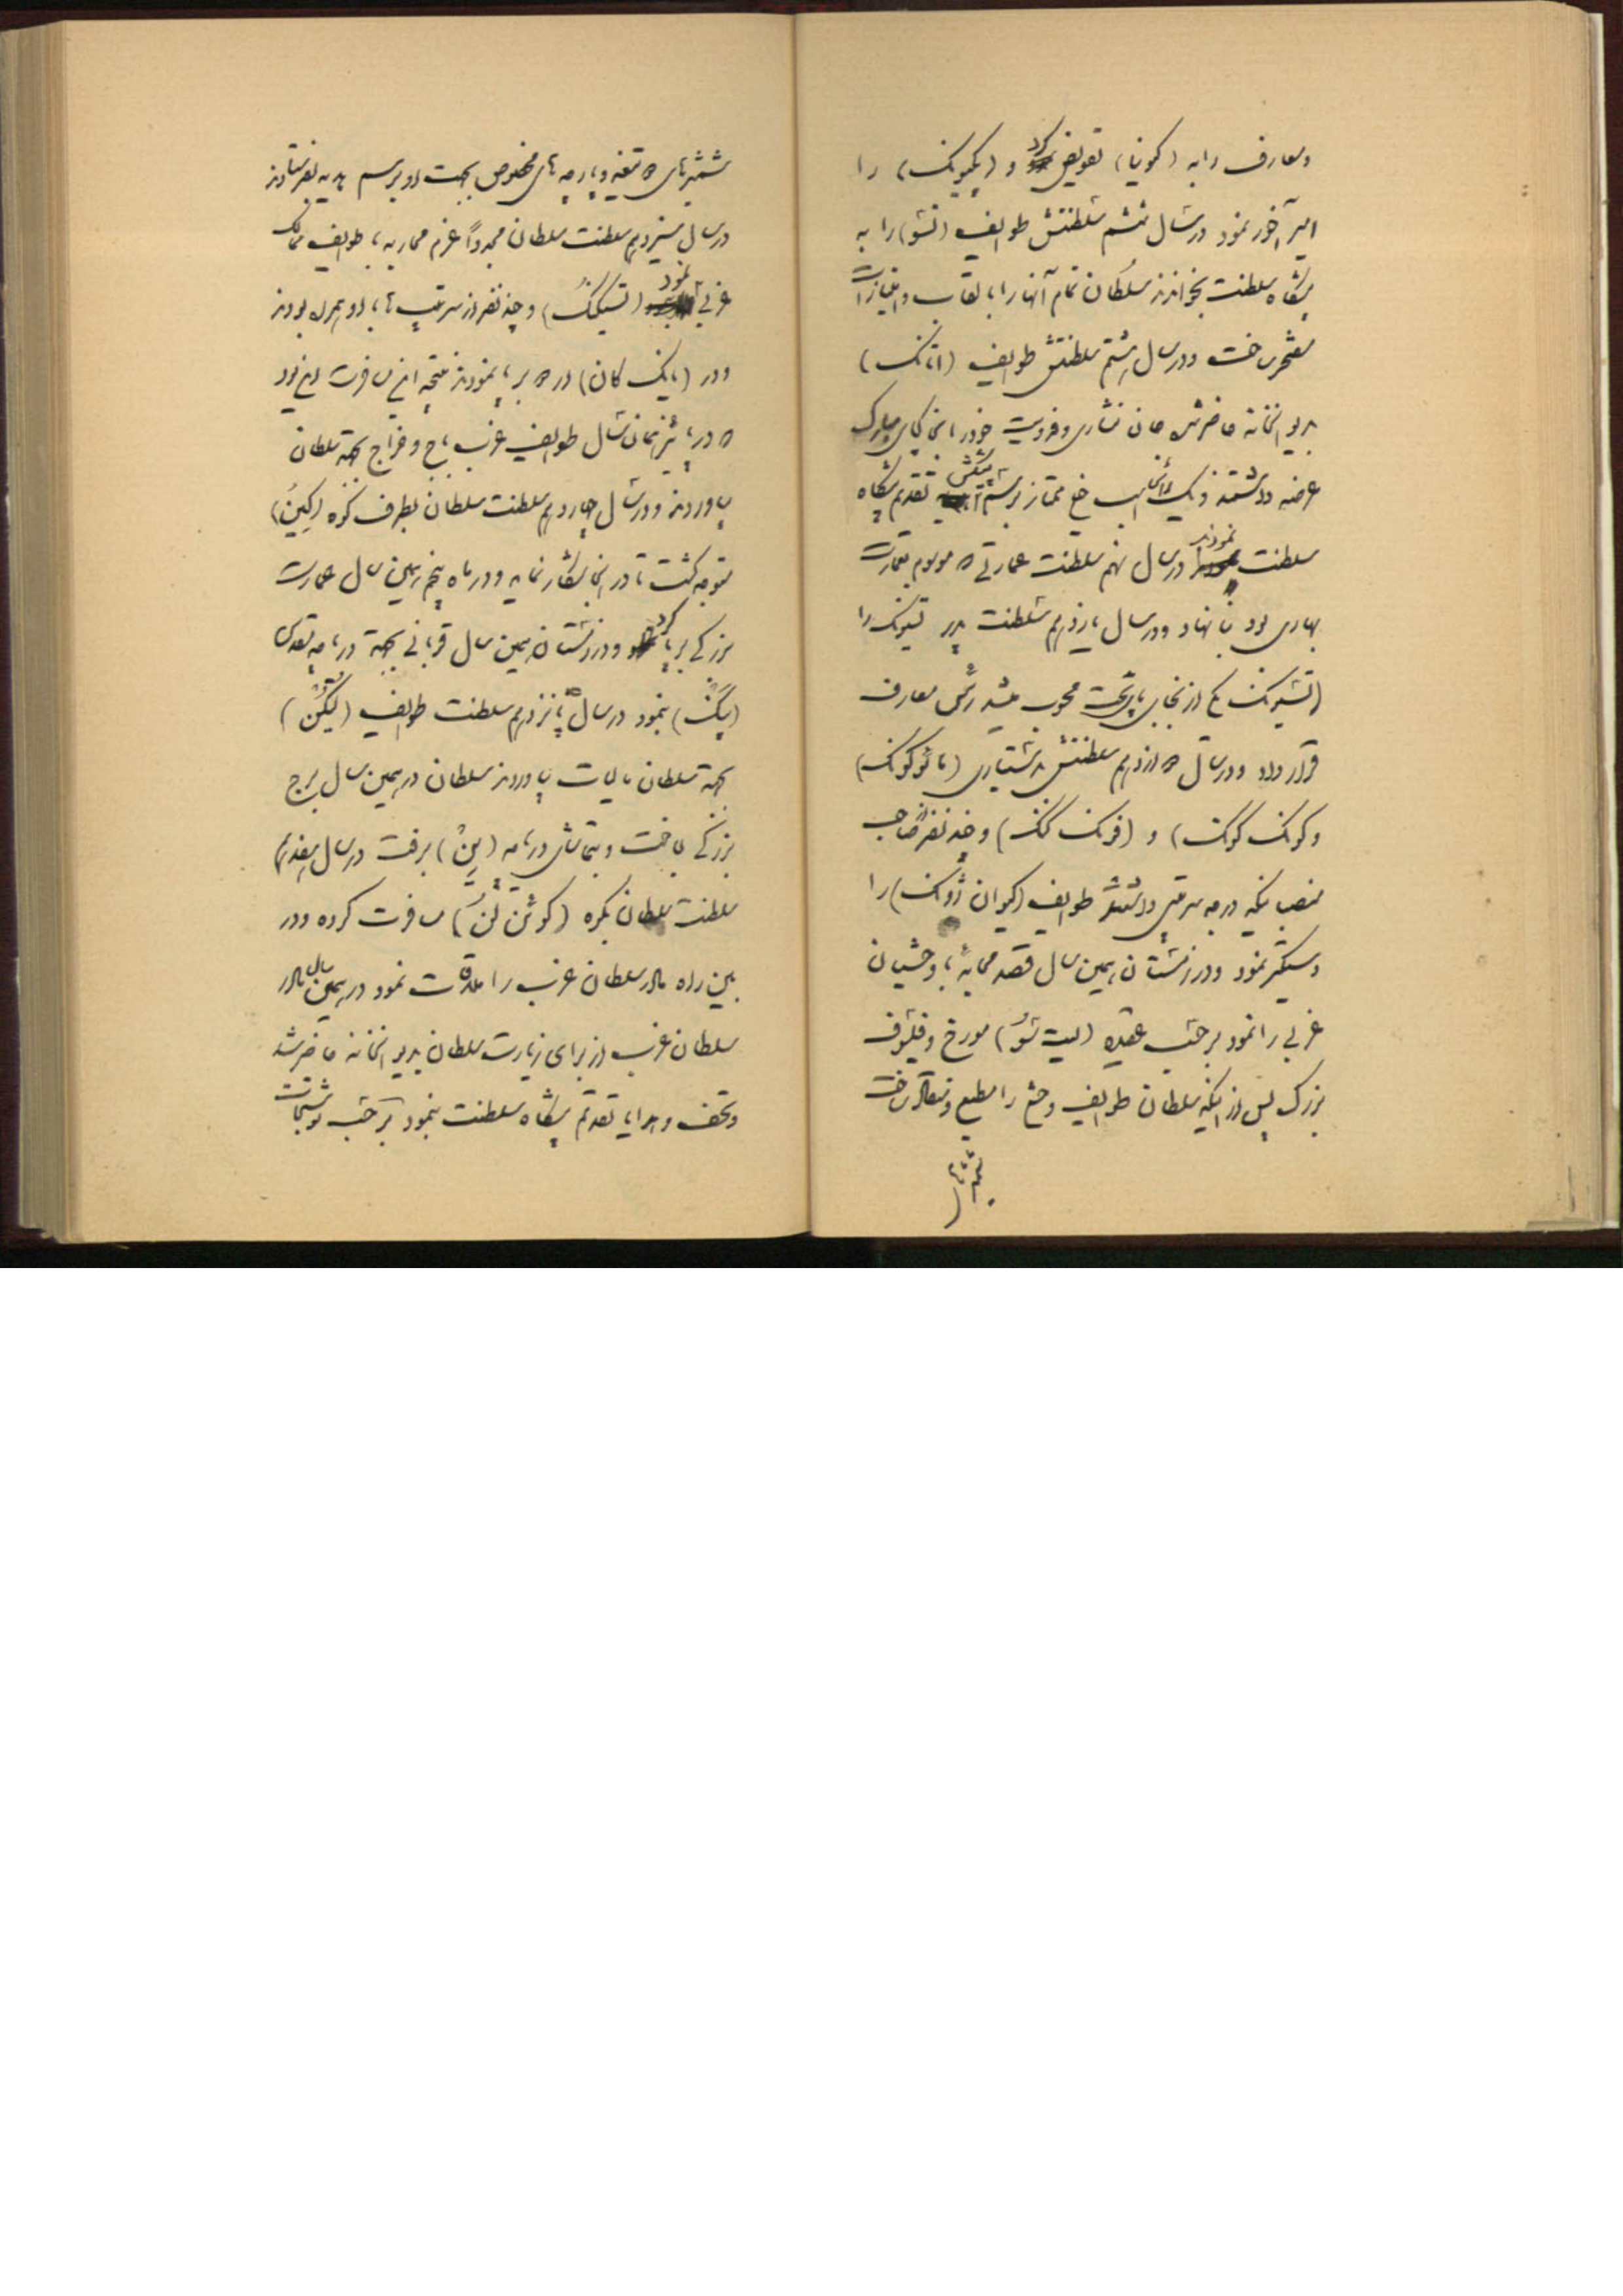 ومعارف را به (کمونیا) تفویض کرد و (بکمیونک) را
امیر آخور نمود در سال ششم سلطنتش طوایف (تشو) را به
پیشگاه سلطنت بخواندند سلطان تمام آنها را با لقاب و امتیازات
مفتخر ساخت و در سال هشتم سلطنتش طوایف (اتانک)
بدیوانخانه حاضر شده جان نثاری و فدویت خود را بخاکپای مبارک
عرضه داشتند و یک راس اسب خیلی ممتاز برسم پیشکش تقدیم پیشگاه
سلطنت نمودند در سال نهم سلطنت عمارتی که موسوم بعمارت
بهاری بود بنا نهاد و در سال یازدهم سلطنت پدر تسیونک را
(تسیونک) که از نجبای پایتخت محسوب میشد رئیس معارف
قرار داد و در سال دوازدهم سلطنتش بدستیاری (مائوکونک)
و کونک کونک) و (فونک کنک) و چند نفر صاحب
منصب دیگر که درجه سرتیپی داشتند طوایف (کیوان ژونک) را
دستگیر نمود و در زمستان همین سال قصد محاربه با وحشیان
غربی را نمود بر حسب عقیده (لیت تسو) مورخ و فیلسوف
بزرگ پس از اینکه سلطان طوایف وحشی را مطیع و منقاد ساخت
شمشیرهای
شمشیرهای که تیغه و پارچه های مخصوص بجهت او برسم هدیه بفرستادند
در سال سیزدهم سلطنت سلطان مجدداً عزم محاربه با طوایف ممالک
غربی نمود (تسیکنک) و چند نفر از سرتیپ ها با او همراه بودند
و در (یانک کان) اردو برپا نمودند نتیجه این مسافرت این بود
که در پائیز همان سال طوایف غرب باج و خراج بجهة سلطان
بیاوردند و در سال چهاردهم سلطنت سلطان بطرف کوه (کین)
متوجه گشت تا در آنجا بشکار نماید و در ماه پنجم همین سال عمارت
بزرگی برپا کرد و در زمستان همین سال قربانی بجهة دریاچه تقدیس
(پنک) بنمود در سال پانزدهم سلطنت طوایف (لیکن)
بجهة سلطان مالیات بیاوردند سلطان در همین سال برج
بزرگی بساخت و بتماشای دریاچه (ین) برفت در سال هفدهم
سلطنت سلطان بکوه (کوئن لن) مسافرت کرده و در
بین راه مادر سلطان غرب را ملاقات نمود در همین سال مادر
سلطان غرب از برای زیارت سلطان بدیوانخانه حاضر شد
و تحف و هدایا تقدیم پیشگاه سلطنت بنمود بر حسب نوشتجات